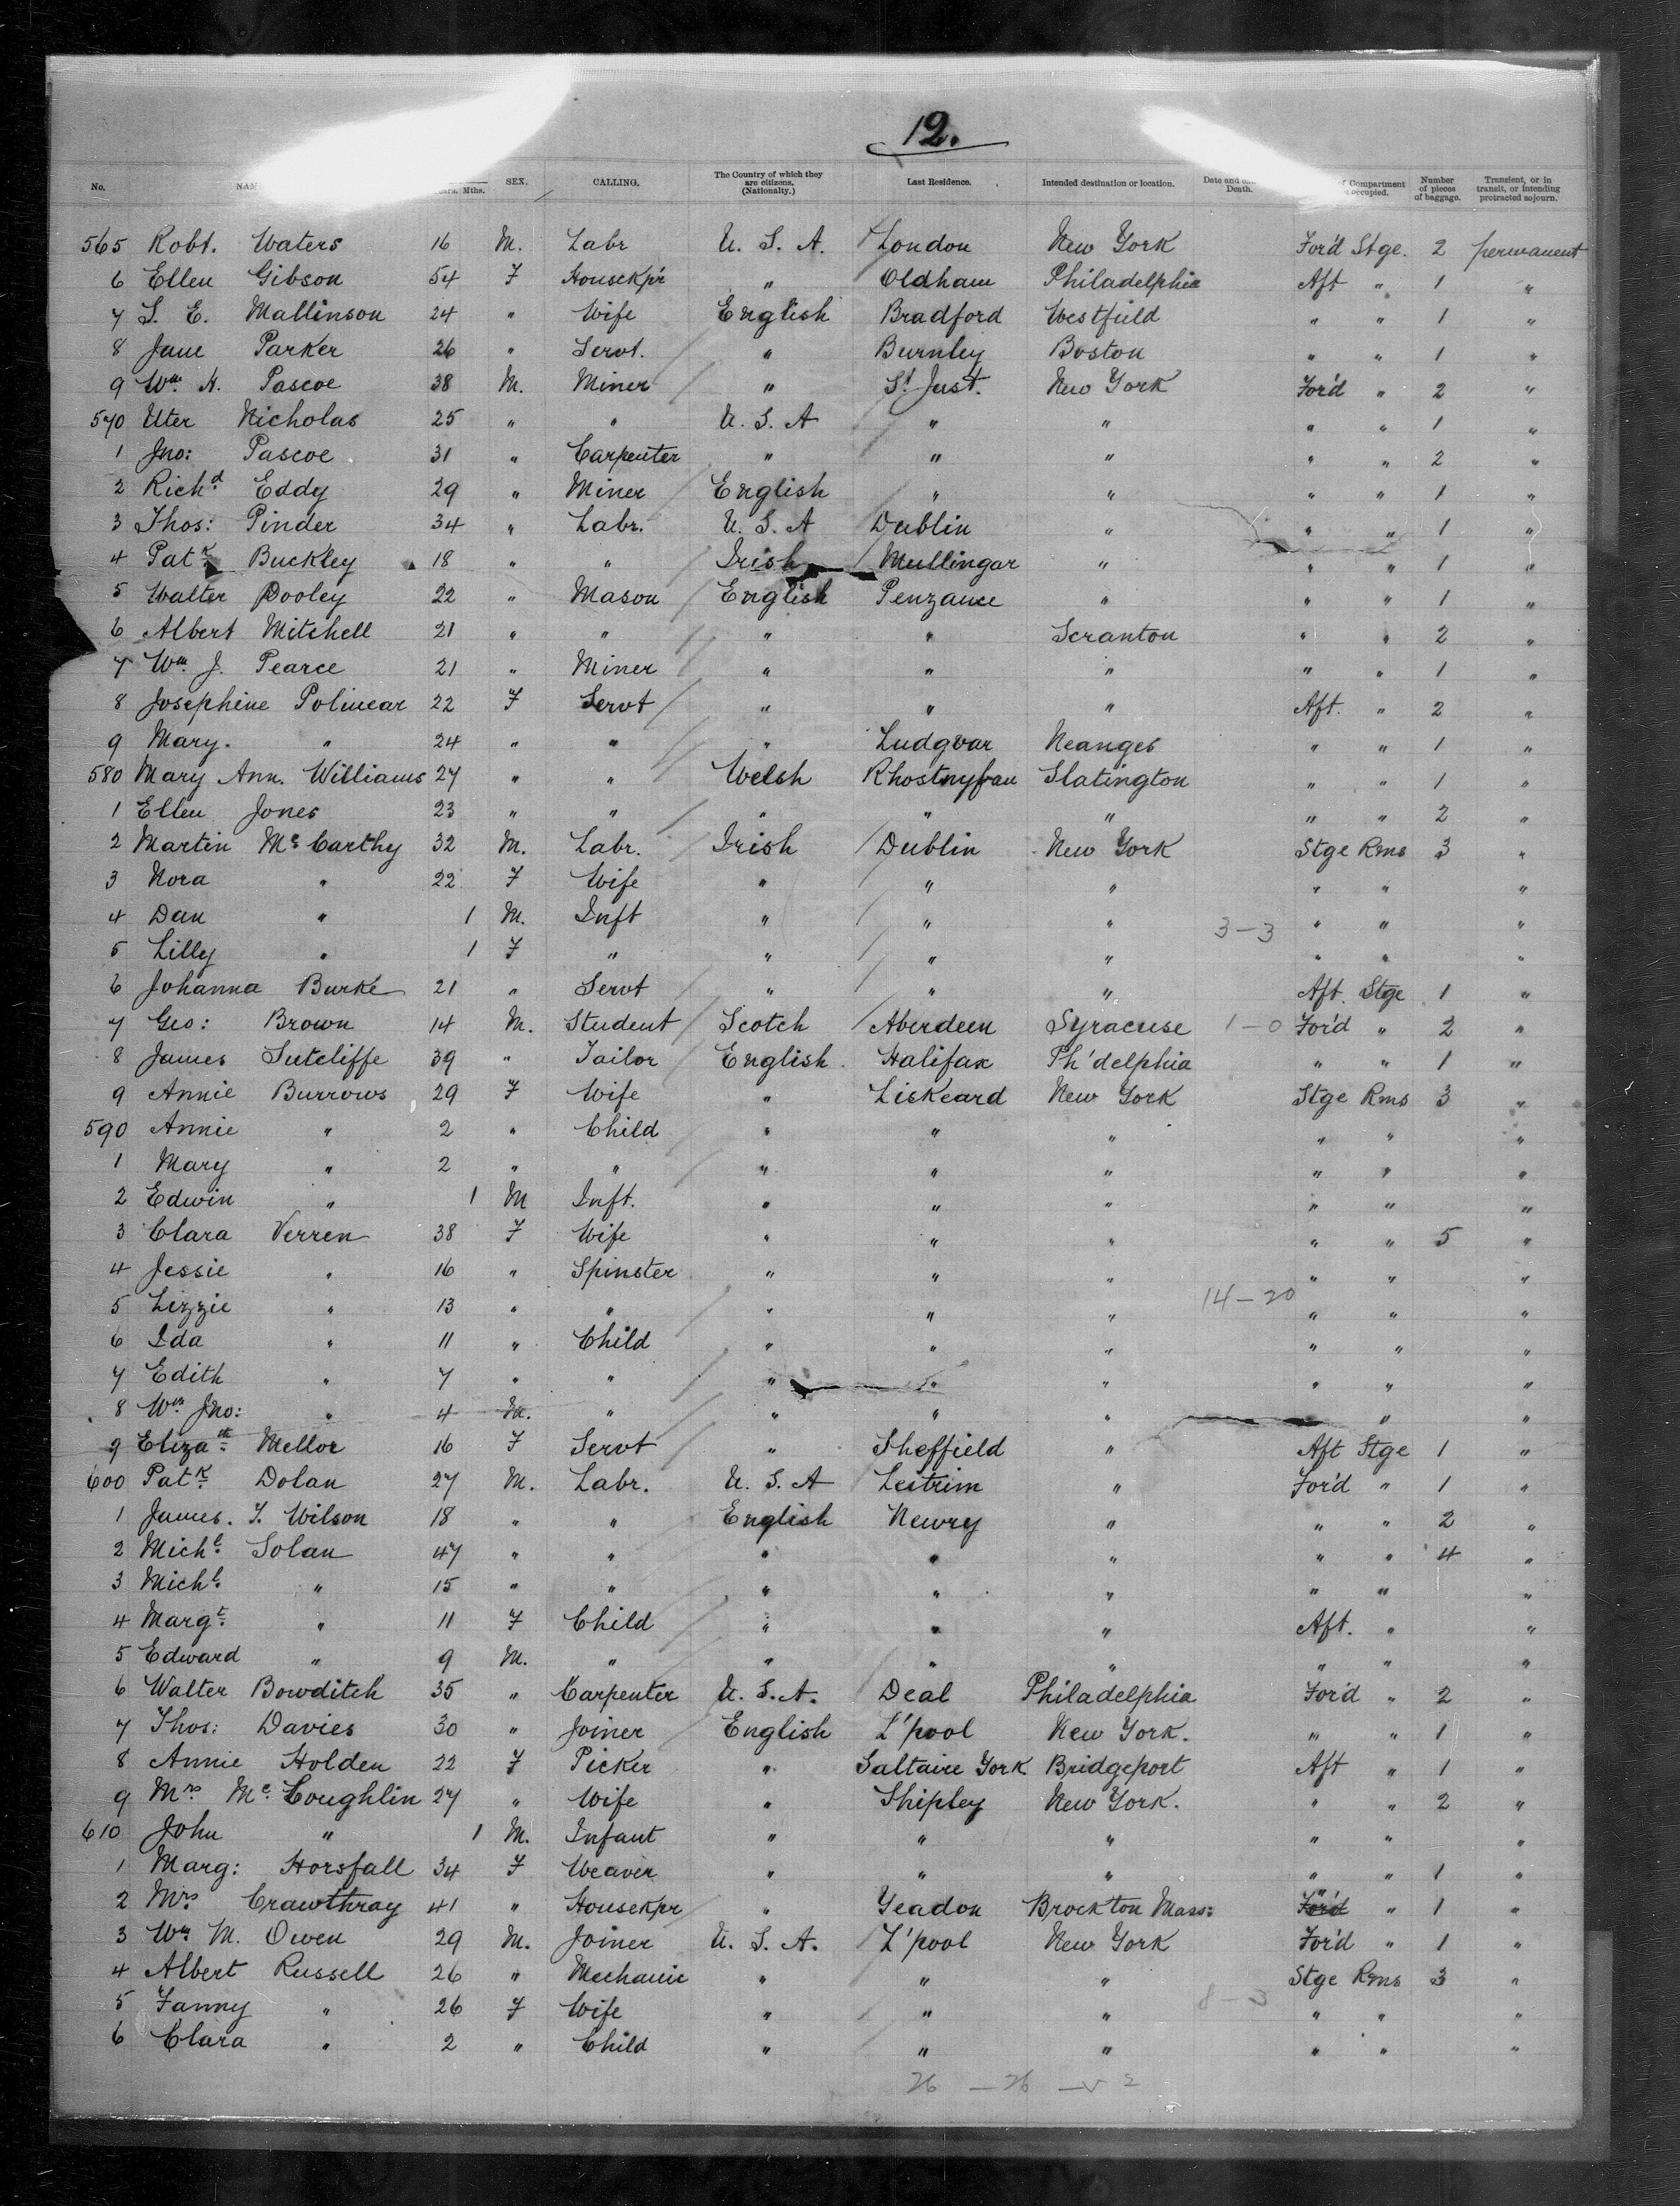 12.
No. NA Mths. SEX. CALLING. The Country of which they are citizens. (Nationality.) Last Residence. Intended destination or location. Date and Death. Compartment occupied. Number of pieces of baggage. Transient, or in transit, or intending protracted sojourn.
565 Robt. Waters 16 M. Labr U. S. A. London New York For'd Stge. 2 permanent
6 Ellen Gibson 54 F Housekpr " Oldham Philadelphia Aft " 1 "
7 S. E. Mallinson 24 " Wife English Bradford Westfield " " 1 "
8 Jane Parker 26 " Servt. " Burnley Boston " " 1 "
9 Wm. H. Pascoe 38 M. Miner " St. Just. New York For'd " 2 "
570 Uter Nicholas 25 " " U. S. A " " " " 1 "
1 Jno: Pascoe 31 " Carpenter " " " " " 2 "
2 Richd. Eddy 29 " Miner English " " " " 1 "
3 Thos: Pinder 34 " Labr. U. S. A Dublin " " " 1 "
4 Patk. Buckley 18 " " Irish Mullingar " " " 1 "
5 Walter Pooley 22 " Mason English Penzance " " " 1 "
6 Albert Mitchell 21 " " " " Scranton " " 2 "
7 Wm. J. Pearce 21 " Miner " " " " " 1 "
8 Josephine Polinear 22 F Servt " " " Aft. " 2 "
9 Mary. " 24 " " " Ludgvar Neanges " " 1 "
580 Mary Ann. Williams 27 " " Welsh Rhostnyfan Slatington " " 1 "
1 Ellen Jones 23 " " " " " " " 2 "
2 Martin McCarthy 32 M. Labr. Irish Dublin New York Stge Rms 3 "
3 Nora " 22 F Wife " " " " " "
4 Dan " 1 M. Inft " " " 3-3 " " "
5 Lilly " 1 F " " " " " " "
6 Johanna Burke 21 " Servt " " " Aft. Stge 1 "
7 Geo: Brown 14 M. Student Scotch Aberdeen Syracuse 1-0 For'd " 2 "
8 James Sutcliffe 39 " Tailor English Halifax Ph'delphia " " 1 "
9 Annie Burrows 29 F Wife " Liskeard New York Stge Rms 3 "
590 Annie " 2 " Child " " " " " "
1 Mary " 2 " " " " " " " "
2 Edwin " 1 M Inft. " " " " " "
3 Clara Verren 38 F Wife " " " " " 5 "
4 Jessie " 16 " Spinster " " " " " "
5 Lizzie " 13 " " " " " 14-20 " " "
6 Ida " 11 " Child " " " " " "
7 Edith " 7 " " " " " " " "
8 Wm Jno: " 4 M. " " " " " "
9 Elizath. Mellor 16 F Servt " Sheffield " Aft Stge 1 "
600 Patk. Dolan 27 M. Labr. U. S. A Leitrim " For'd " 1 "
1 James. T. Wilson 18 " " English Newry " " " 2 "
2 Michl. Solan 47 " " " " " " " 4 "
3 Michl. " 15 " " " " " " " "
4 Margt. " 11 F Child " " " Aft. " "
5 Edward " 9 M. " " " " " " "
6 Walter Bowditch 35 " Carpenter U. S. A. Deal Philadelphia For'd " 2 "
7 Thos: Davies 30 " Joiner English L'pool New York. " " 1 "
8 Annie Holden 22 F Picker " Saltaire York Bridgeport Aft " 1 "
9 Mrs McCoughlin 27 " Wife " Shipley New York. " " 2 "
610 John " 1 M. Infant " " " " " "
1 Marg: Horsfall 34 F Weaver " " " " " 1 "
2 Mrs. Crawthray 41 " Housekpr " Yeadon Brockton Mass: For'd " " 1 "
3 Wm M. Owen 29 M. Joiner U. S. A. L'pool New York For'd " 1 "
4 Albert Russell 26 " Mechanic " " " Stge Rms 3 "
5 Fanny " 26 F Wife " " " 8-3 " " "
6 Clara " 2 " Child " " " " " "
26 - 26